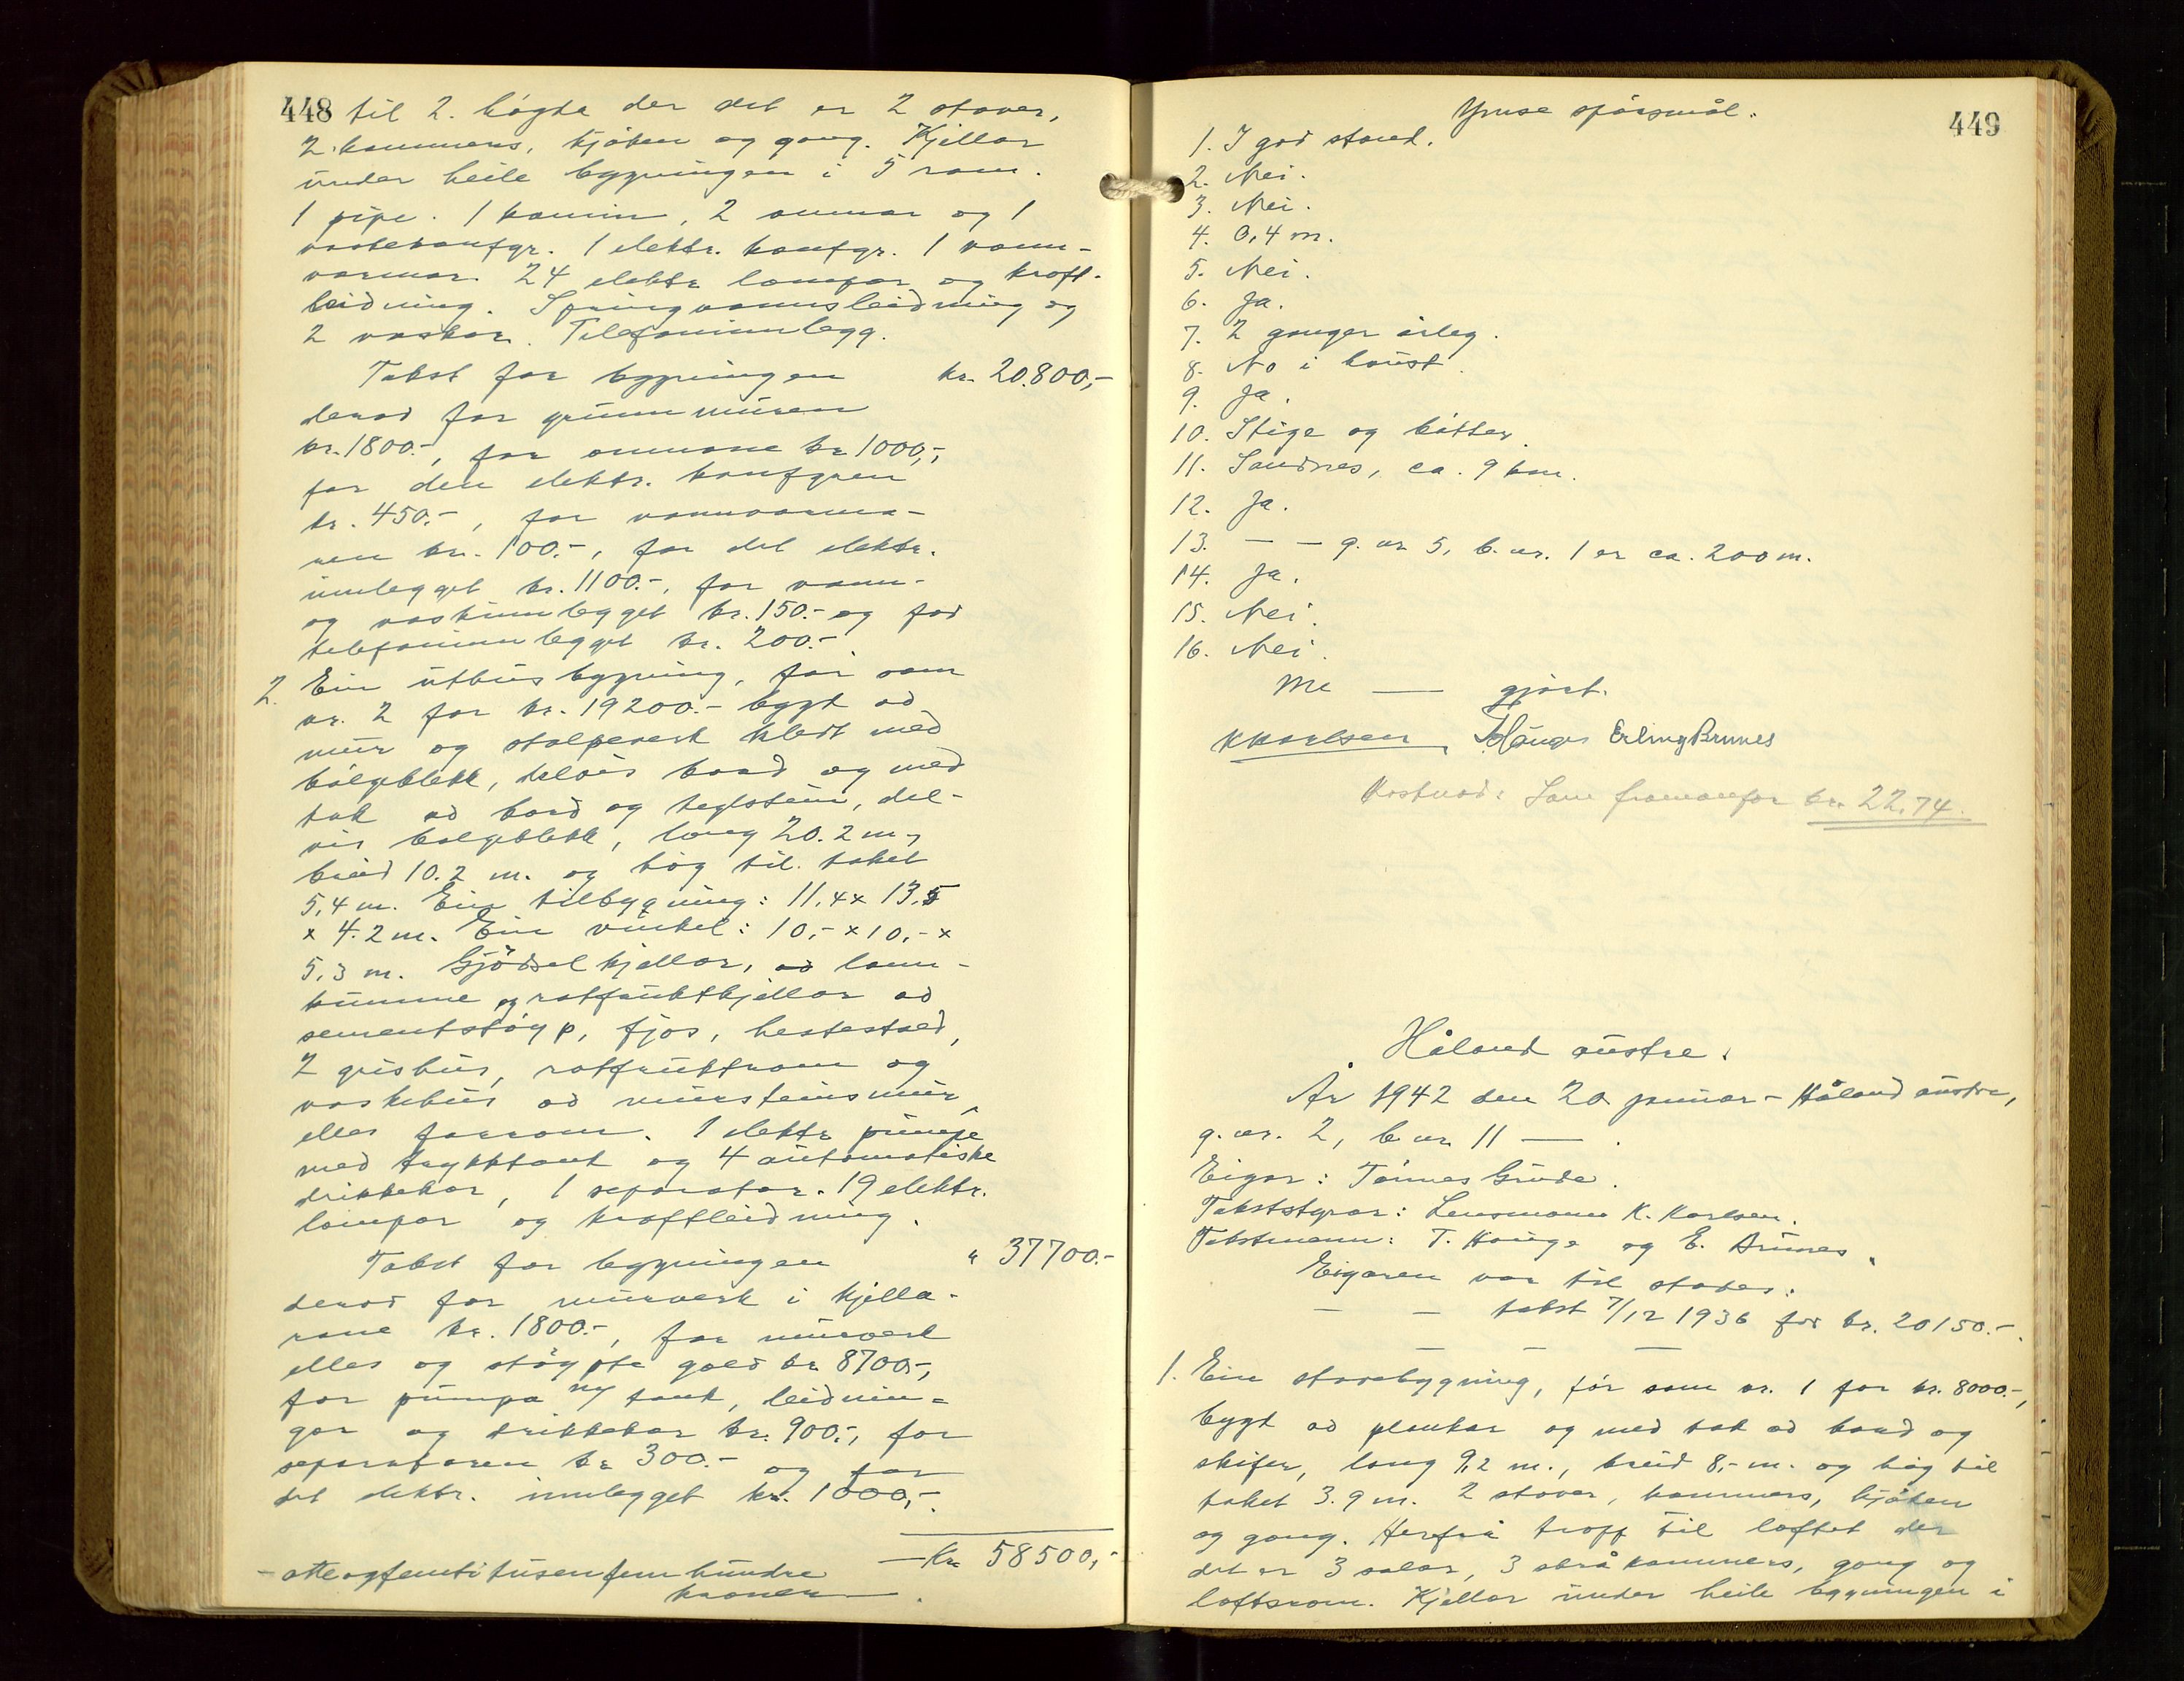 448 til 2. högda der det er 2 stover,
2 kammers, kjöken og gang. Kjellar
under heile bygningen i 5 rom.
1 pipe. 1 kamin, 2 omnar og 1
vaskekomfyr. 1 elektr. komfyr. 1 vann-
varmar. 24 elektr lampor og kraft-
leidning. Springvannsleidning og
2 vaskar. Telefoninnlegg.
Takst for bygningen kr. 20.800,-
derav for grunnmuren
kr. 1800.-, for omnane kr 1000,-,
for den elektr. komfyren
kr. 450.-, for vannvarma-
ren kr. 100.-, for det elektr.
innlegget kr. 1100.-, for vann-
og vaskinnlegget kr. 150.- og for
telefoninnlegget kr. 200.-
2. Ein uthusbygning, før som
nr. 2 for kr. 19200.- bygt av
mur og stolpeverk kledt med
bölgeblekk, delvis bord og med
tak av bord og teglstein, del-
vis bölgeblekk, lang 20.2 m,
breid 10.2 m. og høg til taket
5,4 m. Ein tilbygning: 11,4 x 13,5
x 4.2 m. Ein vinkel: 10,- x 10,- x
5,3 m. Gjödselkjellar, land-
kumme og rotfruktkjellar av
sementstöyp, fjos, hestestall,
2 grishus, rotfruktrom og
vaskehus av mursteinsmur,
elles forrom. 1 elektr pumpe
med trykktank og 4 automatiske
drikkekar, 1 separator. 19 elektr.
lampor og kraftleidning.
Takst for bygningen " 37700.-
derav for murverk i kjella-
rane kr. 1800.-, for murverk
elles og stöypte golv kr 8700,-,
for pumpa m/ tank, leidnin-
gar og drikkekar kr. 900.-, for
separatoren kr 300.- og for
det elektr. innlegget kr. 1000,-.
— Kr 58500,-
- åtteogfemti tusen fem hundre
kroner —.
Ymse spörsmål. 449
1. I god stand.
2. Nei.
3. Nei.
4. 0,4 m.
5. Nei.
6. Ja.
7. 2 ganger årleg.
8. No i haust.
9. Ja.
10. Stige og bötter.
11. Sandnes, ca. 9 km.
12. Ja.
13. — — g. nr 5, b. nr. 1 er ca. 200 m.
14. Ja.
15. Nei.
16. Nei.
Me — gjort.
K Karlsen, T Hauge Erling Brunes
Kostnad: Som framanfor kr. 22.74.
Håland austre.
År 1942 den 20. januar - Håland austre,
g. nr. 2, b. nr 11 — .
Eigar: Tönnes Grude.
Takststyrar: Lensmann K. Karlsen.
Takstmenn: T. Hauge og E. Brunes.
Eigaren var til stades.
— — takst 7/12 1936 for kr. 20150.-.
— — —
1. Ein stovebygning, för som nr. 1 for kr. 8000.-,
bygt av plankar og med tak av bord og
skifer, lang 9,2 m., breid 8,- m. og høg til
taket 3.9 m. 2 stover, kammers, kjöken
og gang. Herfrå tropp til loftet der
det er 3 salar, 3 skråkammers, gang og
loftsrom. Kjellar under heile bygningen i